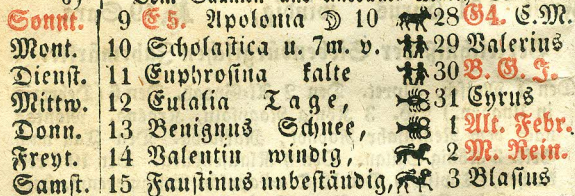 Sonnt. 9 E 5. Apolonia ☽ 10 28 G4. E.M.
Mont. 10 Scholastica u. 7m. v. 29 Valerius
Dienst. 11 Euphrosina kalte 30 B. G. J.
Mittw. 12 Eulalia Tage, 31 Cyrus
Donn. 13 Benignus Schnee, 1 Alt. Febr.
Freyt. 14 Valentin windig, 2 M. Rein.
Samst. 15 Faustinus unbeständig, 3 Blasius